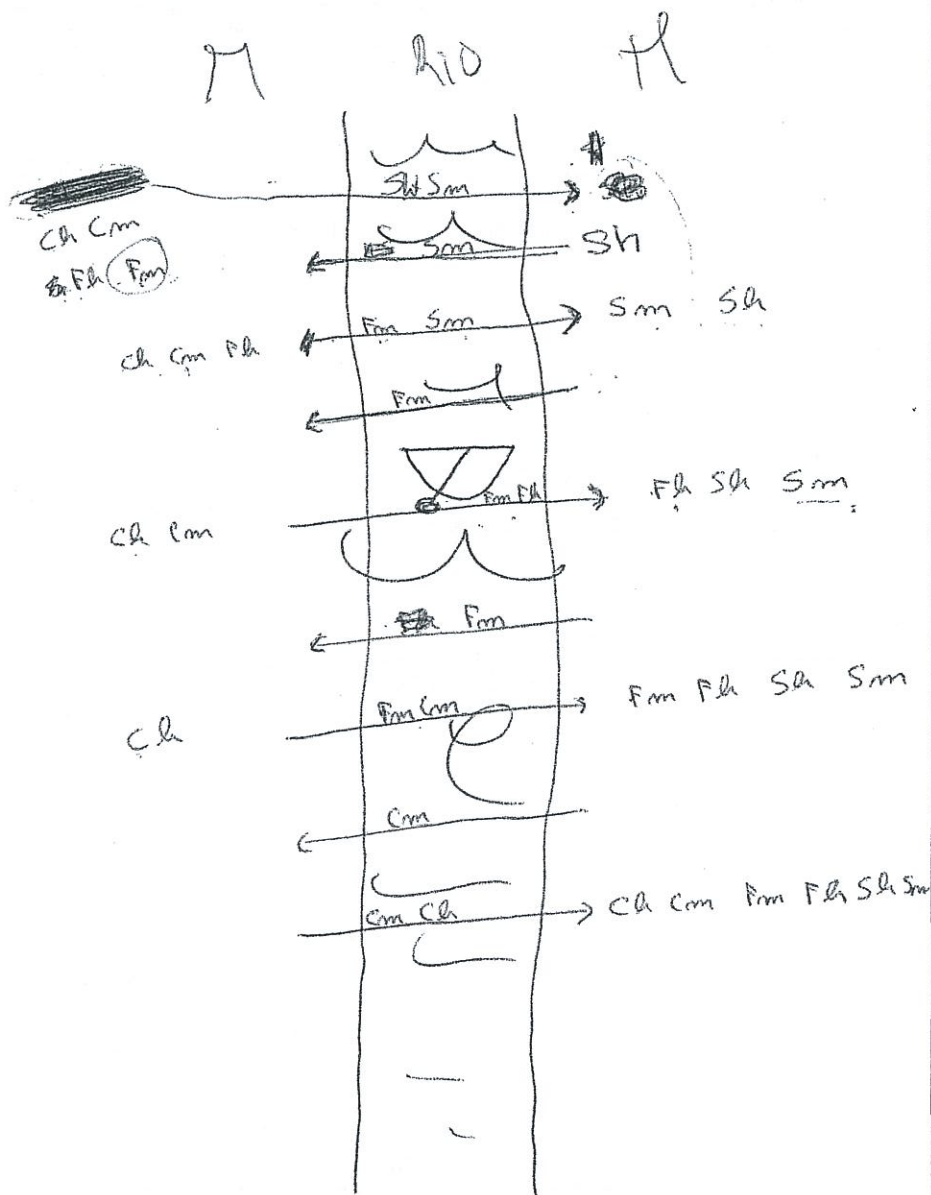 M Rio M
Sh Sm
Ch Cm
Sm Sh
Fh Fm
Fm Sm Sm Sh
Ch Cm Fh
Fm
Fm Fh Fh Sh Sm
Ch Cm
Fm
Fm Cm Fm Fh Sh Sm
Ch
Cm
Cm Ch Ch Cm Fm Fh Sh Sm